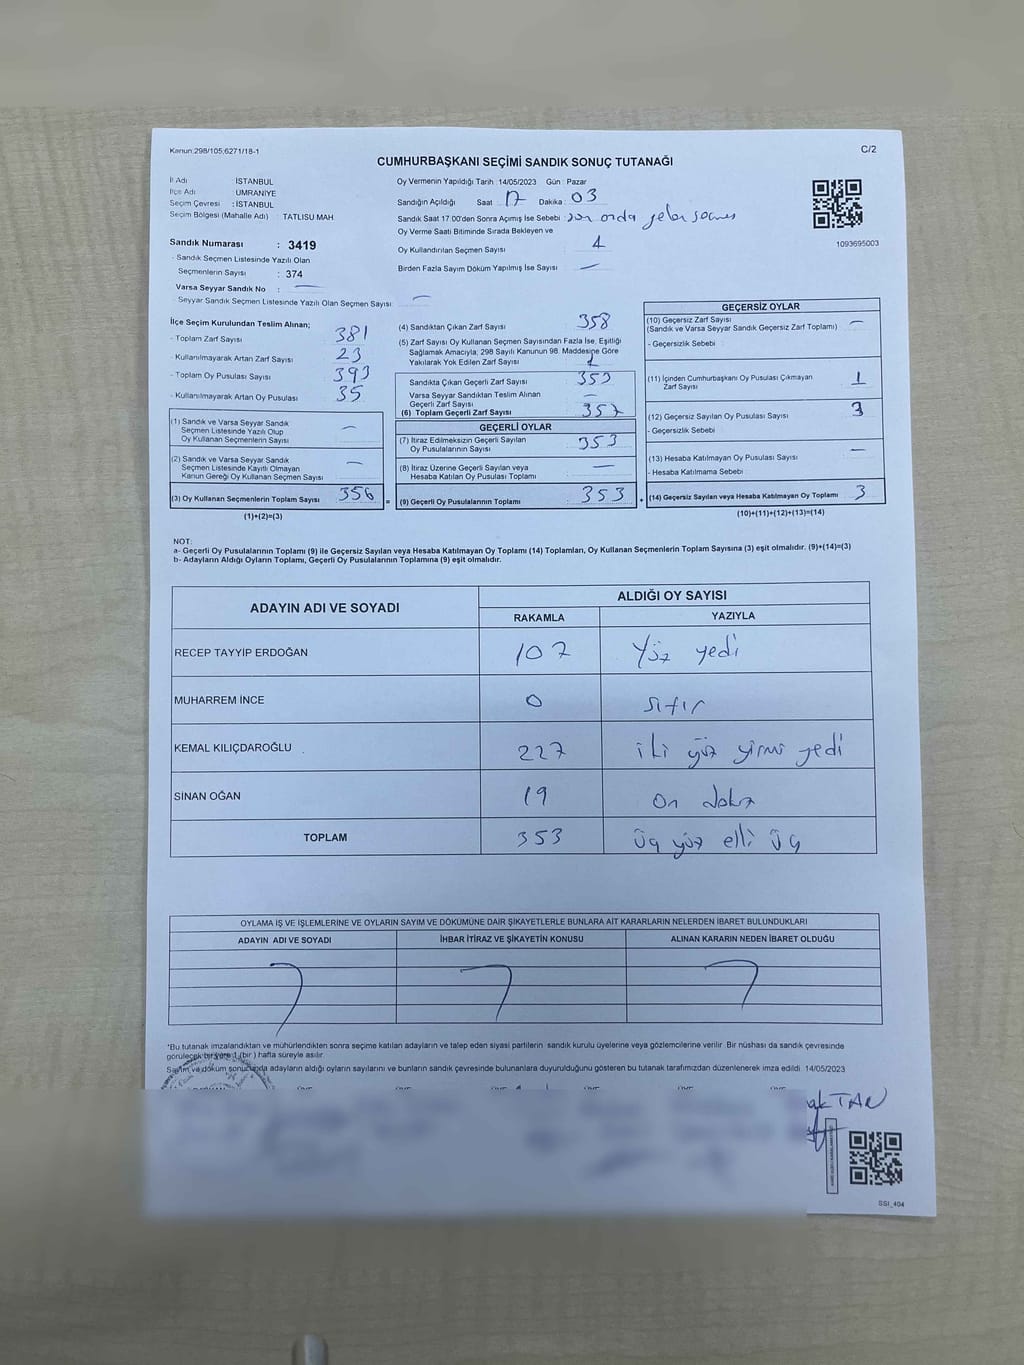 Kanun:298/105;6271/18-1
C/2
CUMHURBAŞKANI SEÇİMİ SANDIK SONUÇ TUTANAĞI
İl Adı : İSTANBUL
İlçe Adı : ÜMRANİYE
Seçim Çevresi : İSTANBUL
Seçim Bölgesi (Mahalle Adı) : TATLISU MAH
Sandık Numarası : 3419
- Sandık Seçmen Listesinde Yazılı Olan
Seçmenlerin Sayısı : 374
Varsa Seyyar Sandık No : —
- Seyyar Sandık Seçmen Listesinde Yazılı Olan Seçmen Sayısı: —
Oy Vermenin Yapıldığı Tarih :14/05/2023 Gün : Pazar
Sandığın Açıldığı Saat : 17 Dakika : 03
Sandık Saat 17.00'den Sonra Açımış İse Sebebi : son anda gelen seçmen
Oy Verme Saati Bitiminde Sırada Bekleyen ve
Oy Kullandırılan Seçmen Sayısı : 4
Birden Fazla Sayım Döküm Yapılmış İse Sayısı : —
1093695003
İlçe Seçim Kurulundan Teslim Alınan;
- Toplam Zarf Sayısı : 381
- Kullanılmayarak Artan Zarf Sayısı : 23
- Toplam Oy Pusulası Sayısı : 393
- Kullanılmayarak Artan Oy Pusulası : 35
(1) Sandık ve Varsa Seyyar Sandık
Seçmen Listesinde Yazılı Olup
Oy Kullanan Seçmenlerin Sayısı : —
(2) Sandık ve Varsa Seyyar Sandık
Seçmen Listesinde Kayıtlı Olmayan
Kanun Gereği Oy Kullanan Seçmen Sayısı : —
(3) Oy Kullanan Seçmenlerin Toplam Sayısı : 356
(1)+(2)=(3)
(4) Sandıktan Çıkan Zarf Sayısı : 358
(5) Zarf Sayısı Oy Kullanan Seçmen Sayısından Fazla İse, Eşitliği
Sağlamak Amacıyla, 298 Sayılı Kanunun 98. Maddesine Göre
Yakılarak Yok Edilen Zarf Sayısı :
Sandıkta Çıkan Geçerli Zarf Sayısı : 353
Varsa Seyyar Sandıktan Teslim Alınan
Geçerli Zarf Sayısı : —
(6) Toplam Geçerli Zarf Sayısı : 357
GEÇERLİ OYLAR
(7) İtiraz Edilmeksizin Geçerli Sayılan
Oy Pusulalarının Sayısı : 353
(8) İtiraz Üzerine Geçerli Sayılan veya
Hesaba Katılan Oy Pusulası Toplamı : —
(9) Geçerli Oy Pusulalarının Toplamı : 353
GEÇERSİZ OYLAR
(10) Geçersiz Zarf Sayısı : —
(Sandık ve Varsa Seyyar Sandık Geçersiz Zarf Toplamı)
- Geçersizlik Sebebi :
(11) İçinden Cumhurbaşkanı Oy Pusulası Çıkmayan
Zarf Sayısı : 1
(12) Geçersiz Sayılan Oy Pusulası Sayısı : 3
- Geçersizlik Sebebi :
(13) Hesaba Katılmayan Oy Pusulası Sayısı : —
- Hesaba Katılmama Sebebi :
(14) Geçersiz Sayılan veya Hesaba Katılmayan Oy Toplamı : 3
(10)+(11)+(12)+(13)=(14)
NOT:
a- Geçerli Oy Pusulalarının Toplamı (9) ile Geçersiz Sayılan veya Hesaba Katılmayan Oy Toplamı (14) Toplamları, Oy Kullanan Seçmenlerin Toplam Sayısına (3) eşit olmalıdır. (9)+(14)=(3)
b- Adayların Aldığı Oyların Toplamı, Geçerli Oy Pusulalarının Toplamına (9) eşit olmalıdır.
ADAYIN ADI VE SOYADI
ALDIĞI OY SAYISI
RAKAMLA YAZIYLA
RECEP TAYYIP ERDOĞAN 107 Yüz yedi
MUHARREM İNCE 0 sıfır
KEMAL KILIÇDAROĞLU 227 iki yüz yirmi yedi
SİNAN OĞAN 19 On dokuz
TOPLAM 353 üç yüz elli üç
OYLAMA İŞ VE İŞLEMLERİNE VE OYLARIN SAYIM VE DÖKÜMÜNE DAİR ŞİKAYETLERLE BUNLARA AİT KARARLARIN NELERDEN İBARET BULUNDUKLARI
ADAYIN ADI VE SOYADI İHBAR İTİRAZ VE ŞİKAYETİN KONUSU ALINAN KARARIN NEDEN İBARET OLDUĞU
*Bu tutanak imzalandıktan ve mühürlendikten sonra seçime katılan adayların ve talep eden siyasi partilerin sandık kurulu üyelerine veya gözlemcilerine verilir. Bir nüshası da sandık çevresinde
görülecek bir yere 1 (bir) hafta süreyle asılır.
Sayım ve döküm sonucunda adayların aldığı oyların sayılarını ve bunların sandık çevresinde bulunanlara duyurulduğunu gösteren bu tutanak tarafımızdan düzenlenerek imza edildi. 14/05/2023
TAN
SSI_404